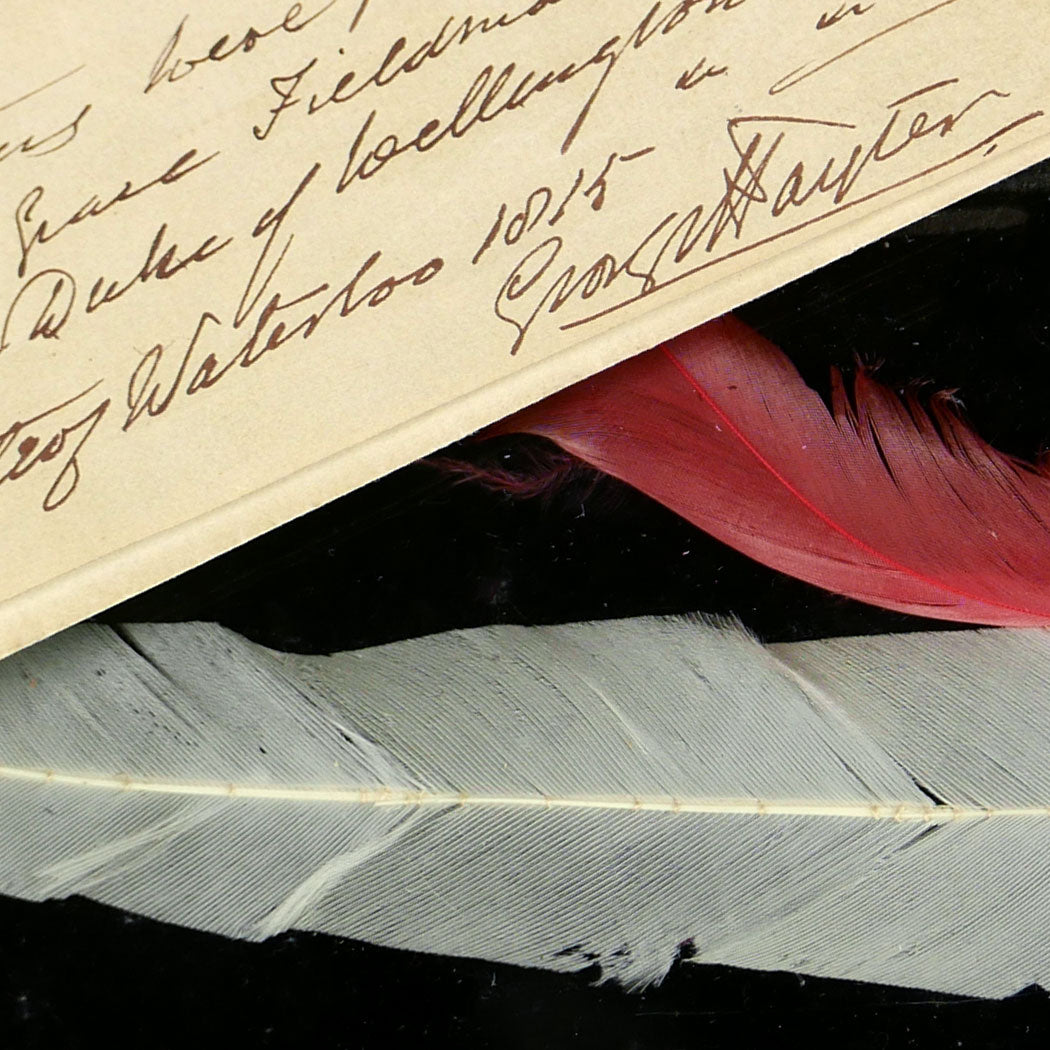 were
Grace Fieldma
Duke of Wellington
of Waterloo 1815 " "
George Hayter